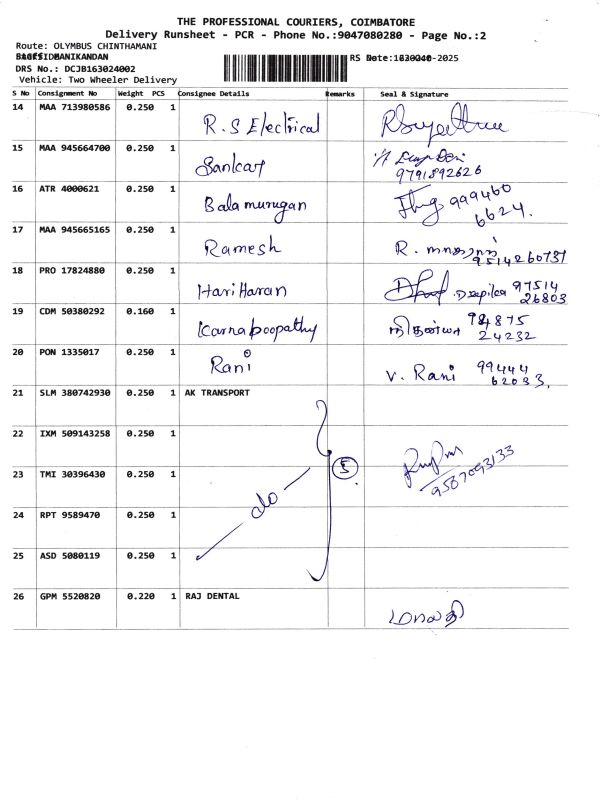 THE PROFESSIONAL COURIERS, COIMBATORE
Delivery Runsheet - PCR - Phone No.:9047080280 - Page No.:2
Route: OLYMBUS CHINTHAMANI
DRS No.: DCJB163024002
Vehicle: Two Wheeler Delivery
S No Consignment No Weight PCS Consignee Details Remarks Seal & Signature
14 MAA 713980586 0.250 1 R.S Electrical
15 MAA 945664700 0.250 1 Sankar 9791892626
16 ATR 4000621 0.250 1 Balamurugan 999460
6624.
17 MAA 945665165 0.250 1 Ramesh R. 9514260731
18 PRO 17824880 0.250 1 Hari Haran Deepika 97514
26803
19 CDM 50380292 0.160 1 Karna boopathy 94875
24232
20 PON 1335017 0.250 1 Rani V. Rani 99444
62033.
21 SLM 380742930 0.250 1 AK TRANSPORT
22 IXM 509143258 0.250 1
23 TMI 30396430 0.250 1 do 5 9587093133
24 RPT 9589470 0.250 1
25 ASD 5080119 0.250 1
26 GPM 5520820 0.220 1 RAJ DENTAL மாலதி